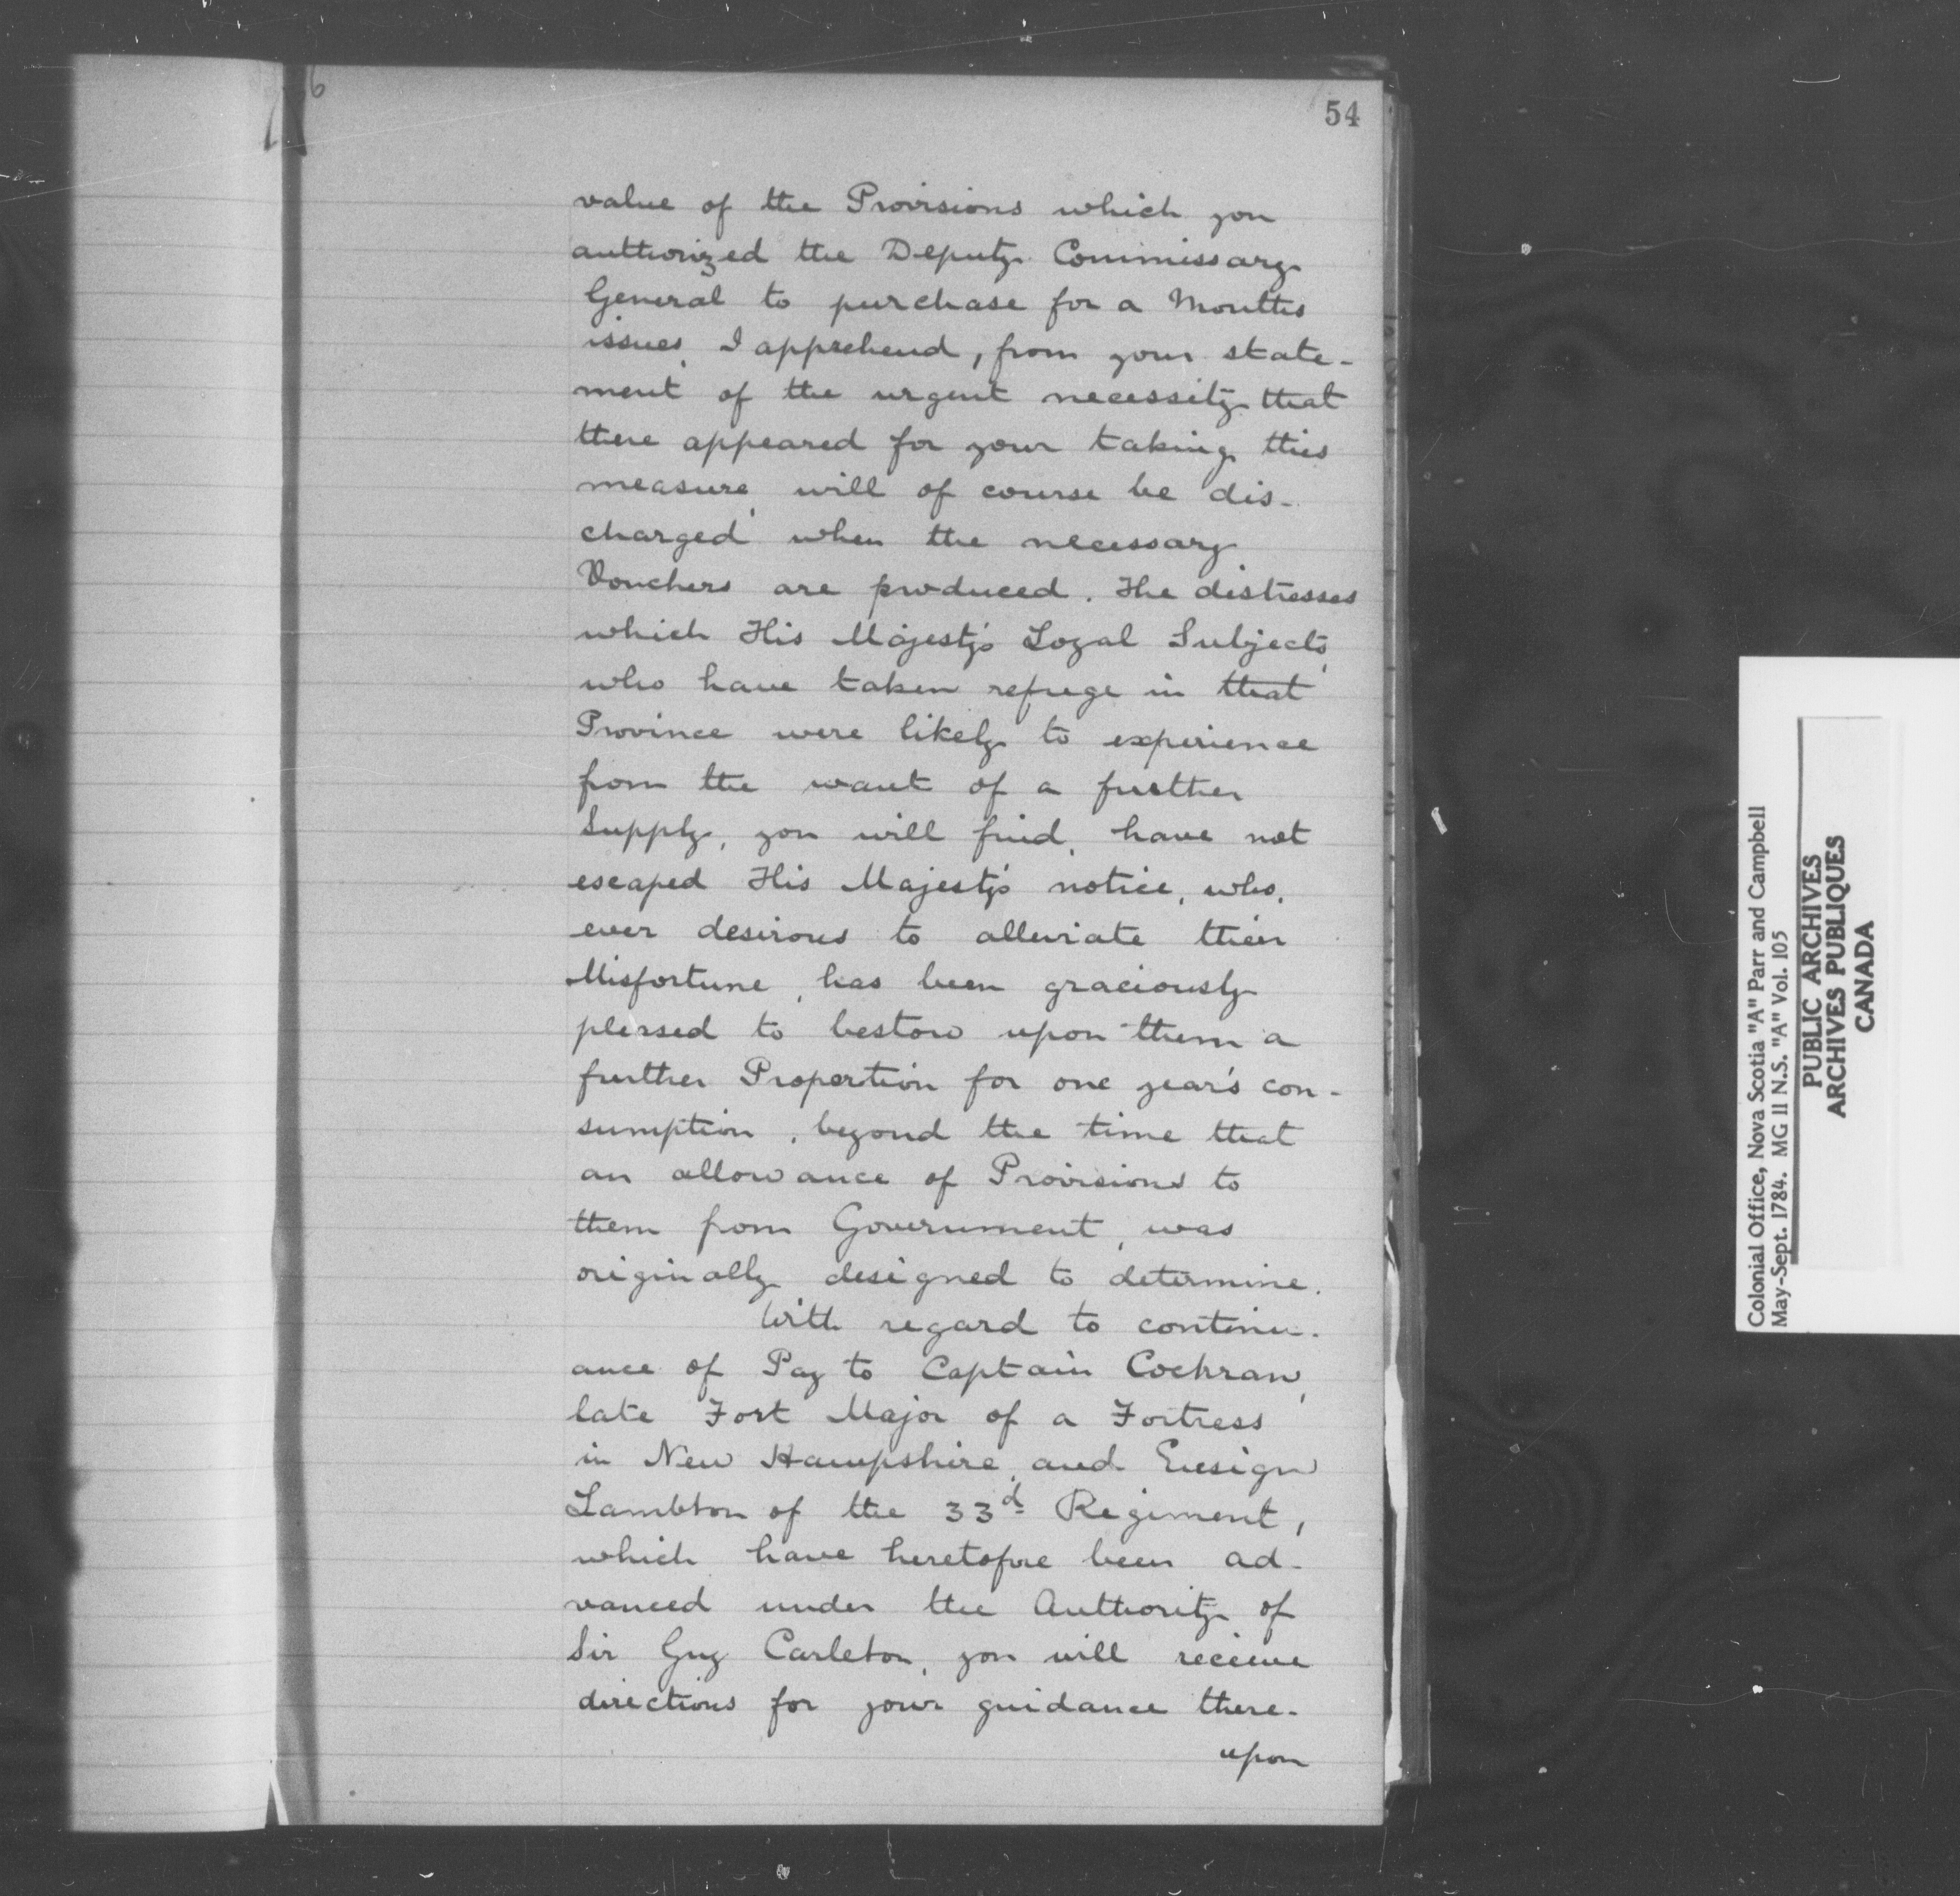 54
value of the Provisions which you
authorized the Deputy Commissary
General to purchase for a Months
issues, I apprehend, from your state-
ment of the urgent necessity that
there appeared for your taking this
measure, will of course be dis-
charged when the necessary
Vouchers are produced. The distresses
which His Majesty's Loyal Subjects,
who have taken refuge in that
Province were likely to experience
from the want of a further
Supply, you will find, have not
escaped His Majesty's notice, who,
ever desirous to alleviate their
Misfortune, has been graciously
pleased to bestow upon them a
further Proportion for one year's con-
sumption, beyond the time that
an allowance of Provisions to
them from Government, was
originally designed to determine.
With regard to continu-
ance of Pay to Captain Cochran,
late Fort Major of a Fortress
in New Hampshire, and Ensign
Lambton of the 33d Regiment,
which have heretofore been ad-
vanced under the Authority of
Sir Guy Carleton, you will receive
directions for your guidance there-
upon
Colonial Office, Nova Scotia "A" Parr and Campbell
May-Sept. 1784. MG 11 N.S. "A" Vol. 105
PUBLIC ARCHIVES
ARCHIVES PUBLIQUES
CANADA